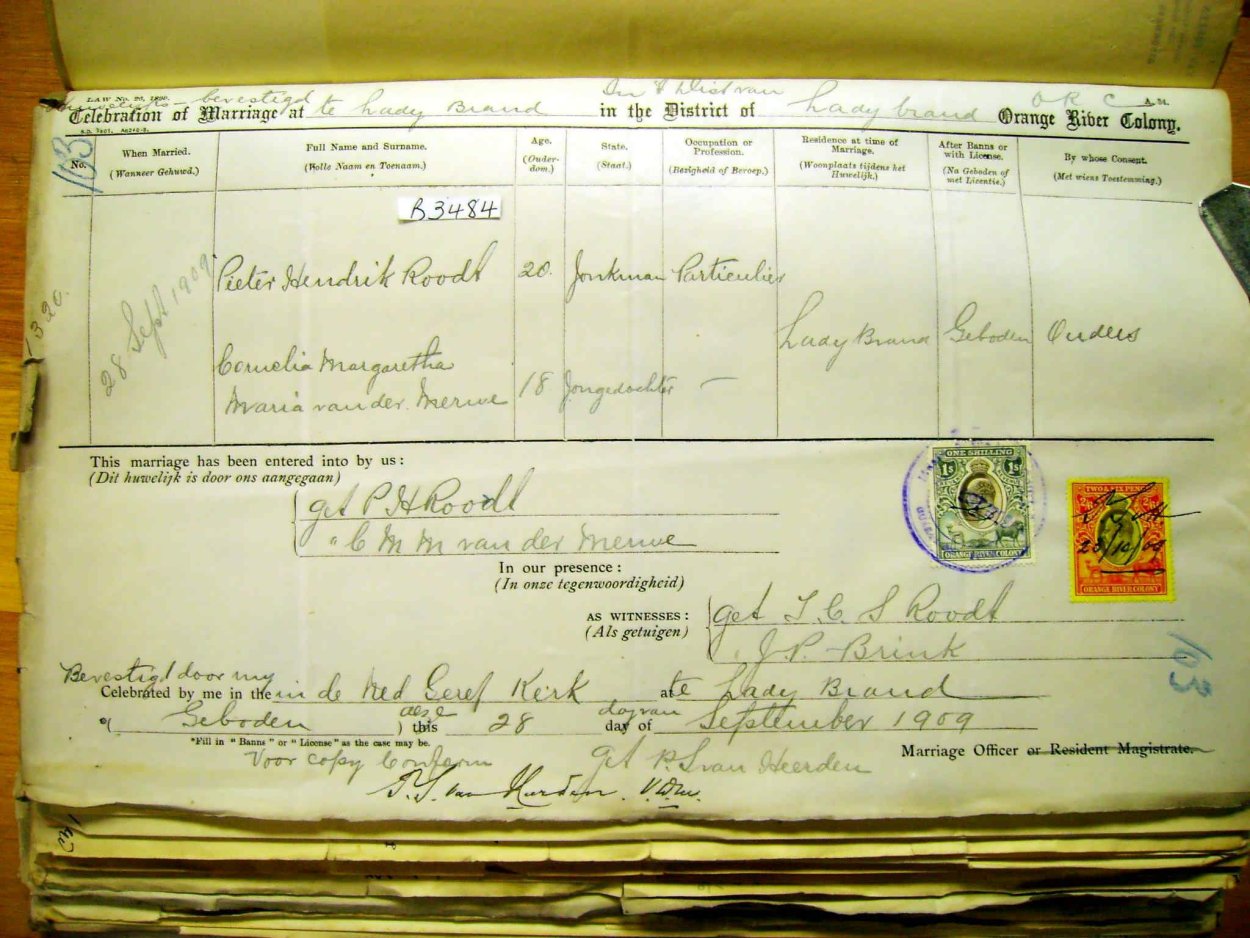 LAW No. 26, 1899.
bevestigd te Lady Brand In 't Dist van Lady brand O R C
Celebration of Marriage at in the District of Orange River Colony.
A. 24.
103
No.
When Married.
(Wanneer Gehuwd.)
Full Name and Surname.
(Volle Naam en Toenaam.)
Age.
(Ouderdom.)
State.
(Staat.)
Occupation or Profession.
(Bezigheid of Beroep.)
Residence at time of Marriage.
(Woonplaats tijdens het Huwelijk.)
After Banns or with License.
(Na Geboden of met Licentie.)
By whose Consent.
(Met wiens Toestemming.)
B3484
1320.
28 Sept 1909
Pieter Hendrik Roodt 20. Jonkman Particulier
Lady Brand Geboden Ouders
Cornelia Margaretha
Maria van der Merwe 18 Jongedochter —
This marriage has been entered into by us :
(Dit huwelijk is door ons aangegaan)
get P H Roodt
" C M M van der Merwe
In our presence :
(In onze tegenwoordigheid)
AS WITNESSES :
(Als getuigen)
get T. C. S Roodt
" J. P. Brink
ONE SHILLING
1s 1s
ORANGE RIVER COLONY
TWO & SIX PENCE
20/10/09
ORANGE RIVER COLONY
103
Bevestigd door my
Celebrated by me in the in de Ned Geref Kerk at te Lady Brand
*( Geboden ) this dese 28 day of dag van September 1909
*Fill in "Banns" or "License" as the case may be.
Marriage Officer or Resident Magistrate.
Voor copy Conform get P. S van Heerden
P. S. van Heerden. V.D.M.